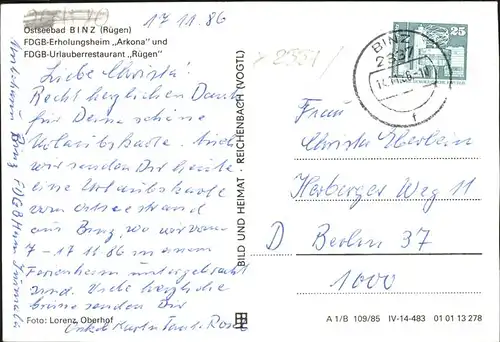 17 11. 86
Ostseebad BINZ (Rügen)
FDGB-Erholungsheim „Arkona" und
FDGB-Urlauberrestaurant „Rügen"
Liebe Christa!
Recht herzlichen Dank
für Deine schöne
Urlaubskarte. Auch
wir senden Dir heute
eine Urlaubskarte
vom Ostseestrand
aus Binz, wo wir vom
7-17 11. 86 in einem
Ferienheim untergebracht
sind. Viele herzliche
Grüsse senden Dir
Onkel Kurt u. Tante Rosel
Binz FDGB Heim
Foto: Lorenz, Oberhof
BILD UND HEIMAT · REICHENBACH (VOGTL)
BINZ
2337
f
25
Frau
Christa Eberlein
Herberger Weg 11
D Berlin 37
1000
A 1/B 109/85 IV-14-483 01 01 13 278